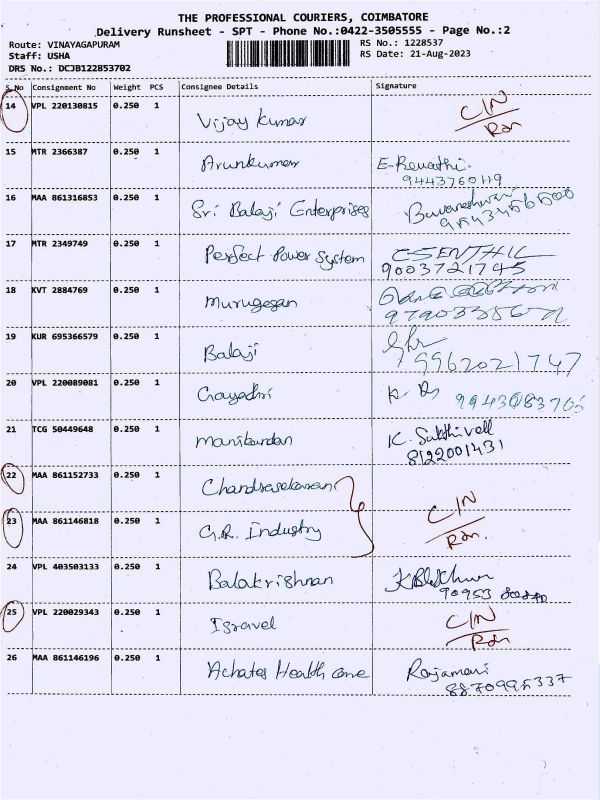 THE PROFESSIONAL COURIERS, COIMBATORE
Delivery Runsheet - SPT - Phone No.:0422-3505555 - Page No.:2
Route: VINAYAGAPURAM
RS No.: 1228537
Staff: USHA
RS Date: 21-Aug-2023
DRS No.: DCJB122853702
S.No Consignment No Weight PCS Consignee Details Signature
14 VPL 220130815 0.250 1 Vijay Kumar C/N
Rsn
15 MTR 2366387 0.250 1 Arunkumar E-Revathi.
9443760119
16 MAA 861316853 0.250 1 Sri Balaji Enterprises Buvaneshwari
17 MTR 2349749 0.250 1 Perfect Power System C SENTHIL
9003721745
18 KVT 2884769 0.250 1 Murugesan
19 KUR 695366579 0.250 1 Balaji
9962021747
20 VPL 220089081 0.250 1 Gayadhri K.
21 TCG 50449648 0.250 1 Manikandan K. Sakthivell
8122001431
22 MAA 861152733 0.250 1 Chandrasekaran
23 MAA 861146818 0.250 1 G.R. Industry C/N
Rsn.
24 VPL 403503133 0.250 1 Balakrishnan
90953
25 VPL 220029343 0.250 1 Isravel C/N
Rsn.
26 MAA 861146196 0.250 1 Achates Health care Rajamani
8870995337